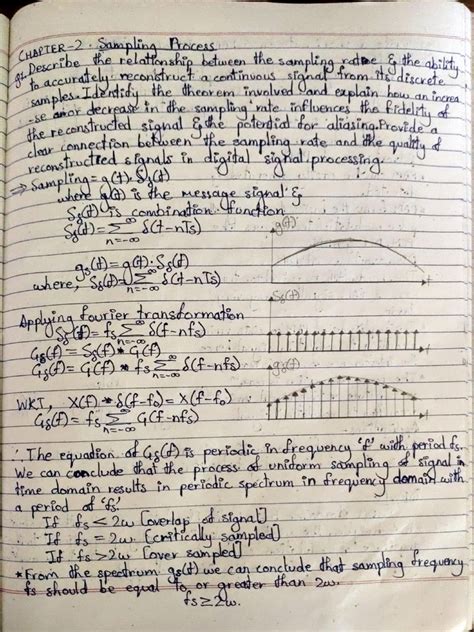 CHAPTER-2. Sampling Process
Q1. Describe the relationship between the sampling rate & the ability
to accurately reconstruct a continuous signal from its discrete
samples. Identify the theorem involved and explain how an increa
-se or decrease in the sampling rate influences the fidelity of
the reconstructed signal & the potential for aliasing. Provide a
clear connection between the sampling rate and the quality of
reconstructied signals in digital signal processing.
⇒ Sampling = g(t).Sδ(t)
where g(t) is the message signal &
Sδ(t) is combination function
Sδ(t) = ∑_{n=-∞}^{∞} δ(t-nTs)
g(t)
gδ(t) = g(t).Sδ(t)
where, Sδ(t) = ∑_{n=-∞}^{∞} δ(t-nTs)
t
Sδ(t)
Applying fourier transformation
Sδ(f) = fs ∑_{n=-∞}^{∞} δ(f-nfs)
Gδ(f) = Sδ(f) * G(f)
Gδ(f) = G(f) * fs ∑_{n=-∞}^{∞} δ(f-nfs)
t
gδ(t)
WKT, X(f) * δ(f-fo) = X(f-fo)
Gδ(f) = fs ∑_{n=-∞}^{∞} G(f-nfs)
t
∴ The equation of Gδ(f) is periodic in frequency 'f' with period fs.
We can conclude that the process of uniform sampling of signal in
time domain results in periodic spectrum in frequency domain with
a period of 'fs'
If fs < 2w [overlap of signal]
If fs = 2w [critically sampled]
If fs > 2w [over sampled]
*From the spectrum gδ(t) we can conclude that sampling frequency
fs should be equal to or greater than 2w.
fs ≥ 2w.